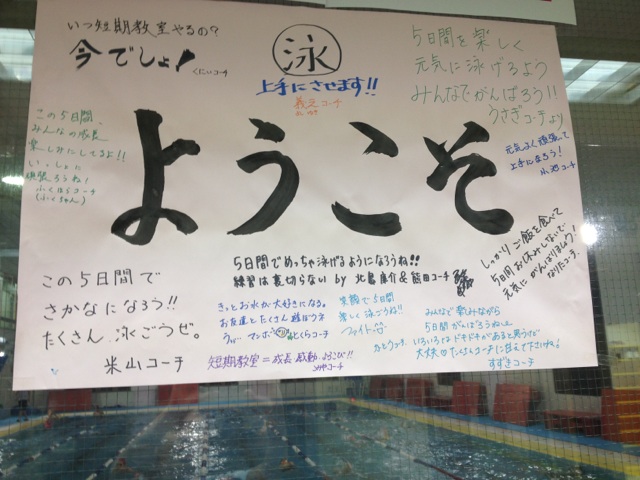 いつ短期教室やるの？
今でしょ！
くにいコーチ
泳
上手にさせます!!
義元コーチ
5日間を楽しく
元気に泳げるよう
みんなでがんばろう!!
うさぎコーチより
この5日間、
みんなの成長
楽しみにしてるよ!!
いっしょに
頑張ろうね！
ふくはらコーチ
(ふくちゃん)
元気よく頑張って
上手になろう！
小沢コーチ
ようこそ
しっかりご飯を食べて
5日間お休みしないで
元気にがんばりましょう！
なりたコーチ
5日間でめっちゃ泳げるようになろうね!!
練習は裏切らない by 北島康介&飯田コーチ
この5日間で
さかなになろう!!
たくさん泳ごうぜ。
米山コーチ
きっとお水が大好きになる。
お友達とたくさん遊ぼうネ
うぃー マンボー とくらコーチ
短期教室=成長 感動 よろこび!!
笑顔で5日間
楽しく泳ごうね!!
ファイト
かとうコーチ
みんなで楽みながら
5日間がんばろうね
いろいろとドキドキがあると思うけど
大丈夫♡たくさんコーチに甘えて下さいね
すずきコーチ